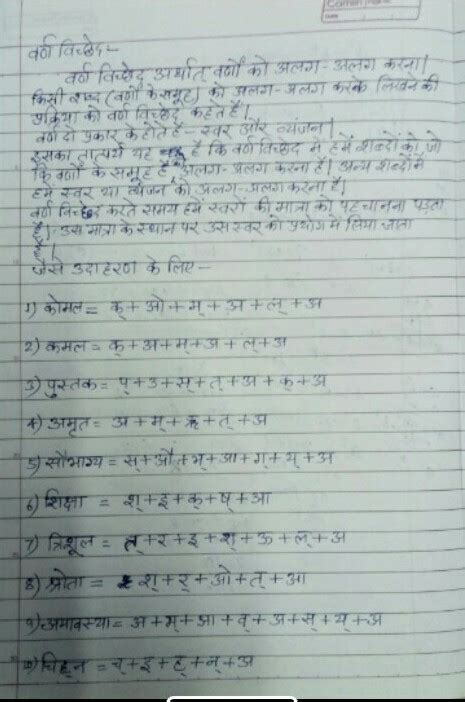 वर्ण विच्छेद-
वर्ण विच्छेद अर्थात् वर्णों को अलग-अलग करना।
किसी शब्द (वर्णों के समूह) को अलग-अलग करके लिखने की
प्रक्रिया को वर्ण विच्छेद कहते हैं।
वर्ण दो प्रकार के होते हैं- स्वर और व्यंजन।
इसका तात्पर्य यह है कि वर्ण विच्छेद में हमें शब्दों को, जो
कि वर्णों के समूह हैं, अलग-अलग करना है। अन्य शब्दों में
हमें स्वर या व्यंजन को अलग-अलग करना है।
वर्ण विच्छेद करते समय हमें स्वरों की मात्रा को पहचानना पड़ता
है। उस मात्रा के स्थान पर उस स्वर को प्रयोग में लिया जाता
है।
जैसे उदाहरण के लिए-
1) कोमल = क्+ओ+म्+अ+ल्+अ
2) कमल = क्+अ+म्+अ+ल्+अ
3) पुस्तक = प्+उ+स्+त्+अ+क्+अ
4) अमृत = अ+म्+ऋ+त्+अ
5) सौभाग्य = स्+औ+भ्+आ+ग्+य्+अ
6) शिक्षा = श्+इ+क्+ष्+आ
7) त्रिशूल = त्+र+इ+श्+ऊ+ल्+अ
8) श्रोता = श्+र्+ओ+त्+आ
9) अमावस्या = अ+म्+आ+व्+अ+स्+य्+अ
10) चिह्न = च्+इ+ह्+न्+अ